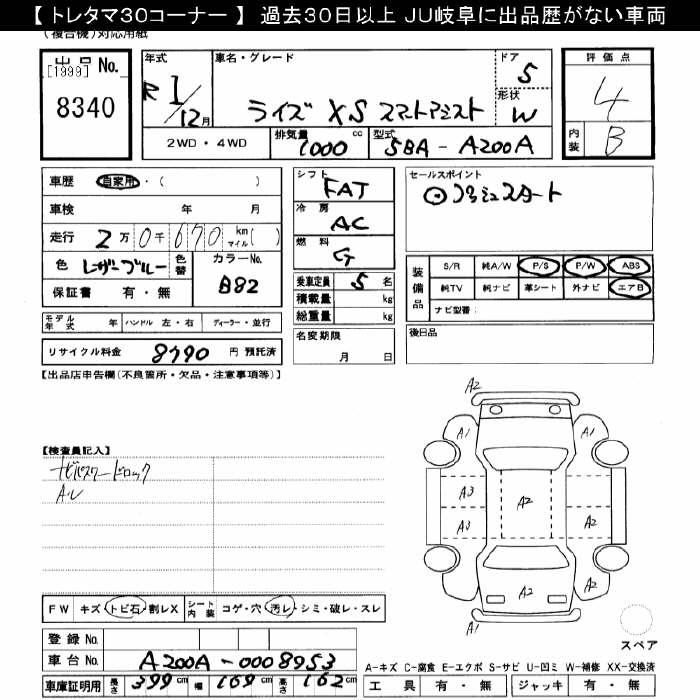 【 トレタマ30コーナー 】 過去30日以上 JU岐阜に出品歴がない車両
(複合機)対応用紙
出品 No.
[1999]
8340
年式
R 1/12月
車名・グレード
ライズ XS スマートアシスト
ドア 5
形状 W
評価点
4
内装 B
2WD・4WD
排気量 1000 cc
型式 5BA - A200A
車歴 自家用・( )
車検 年 月
走行 2万0千670 km マイル( )
色 レーザーブルー 色替 カラーNo. B82
保証書 有・無
シフト FAT
冷房 AC
燃料 G
乗車定員 5 名
積載量 kg
総重量 kg
名変期限
月 日
セールスポイント
⊙ プッシュスタート
装備品
S/R 純A/W P/S P/W ABS
純TV 純ナビ 革シート 外ナビ エアB
ナビ型番:
後日品
モデル年式 年 ハンドル 左・右 ディーラー・並行
リサイクル料金 8790 円 預託済
【出品店申告欄(不良箇所・欠品・注意事項等)】
【検査員記入】
A・U
A2
A1 A1
A3 A2
A3 A2
A2
A1
FW キズ・トビ石・割レX シート内装 コゲ・穴・汚レ・シミ・破レ・スレ
登録 No.
車台 No. A200A-0008953
車庫証明用 長さ 399 cm 幅 169 cm 高さ 162 cm
スペア
A-キズ C-腐食 E-エクボ S-サビ U-凹ミ W-補修 XX-交換済
工具 有・無 ジャッキ 有・無